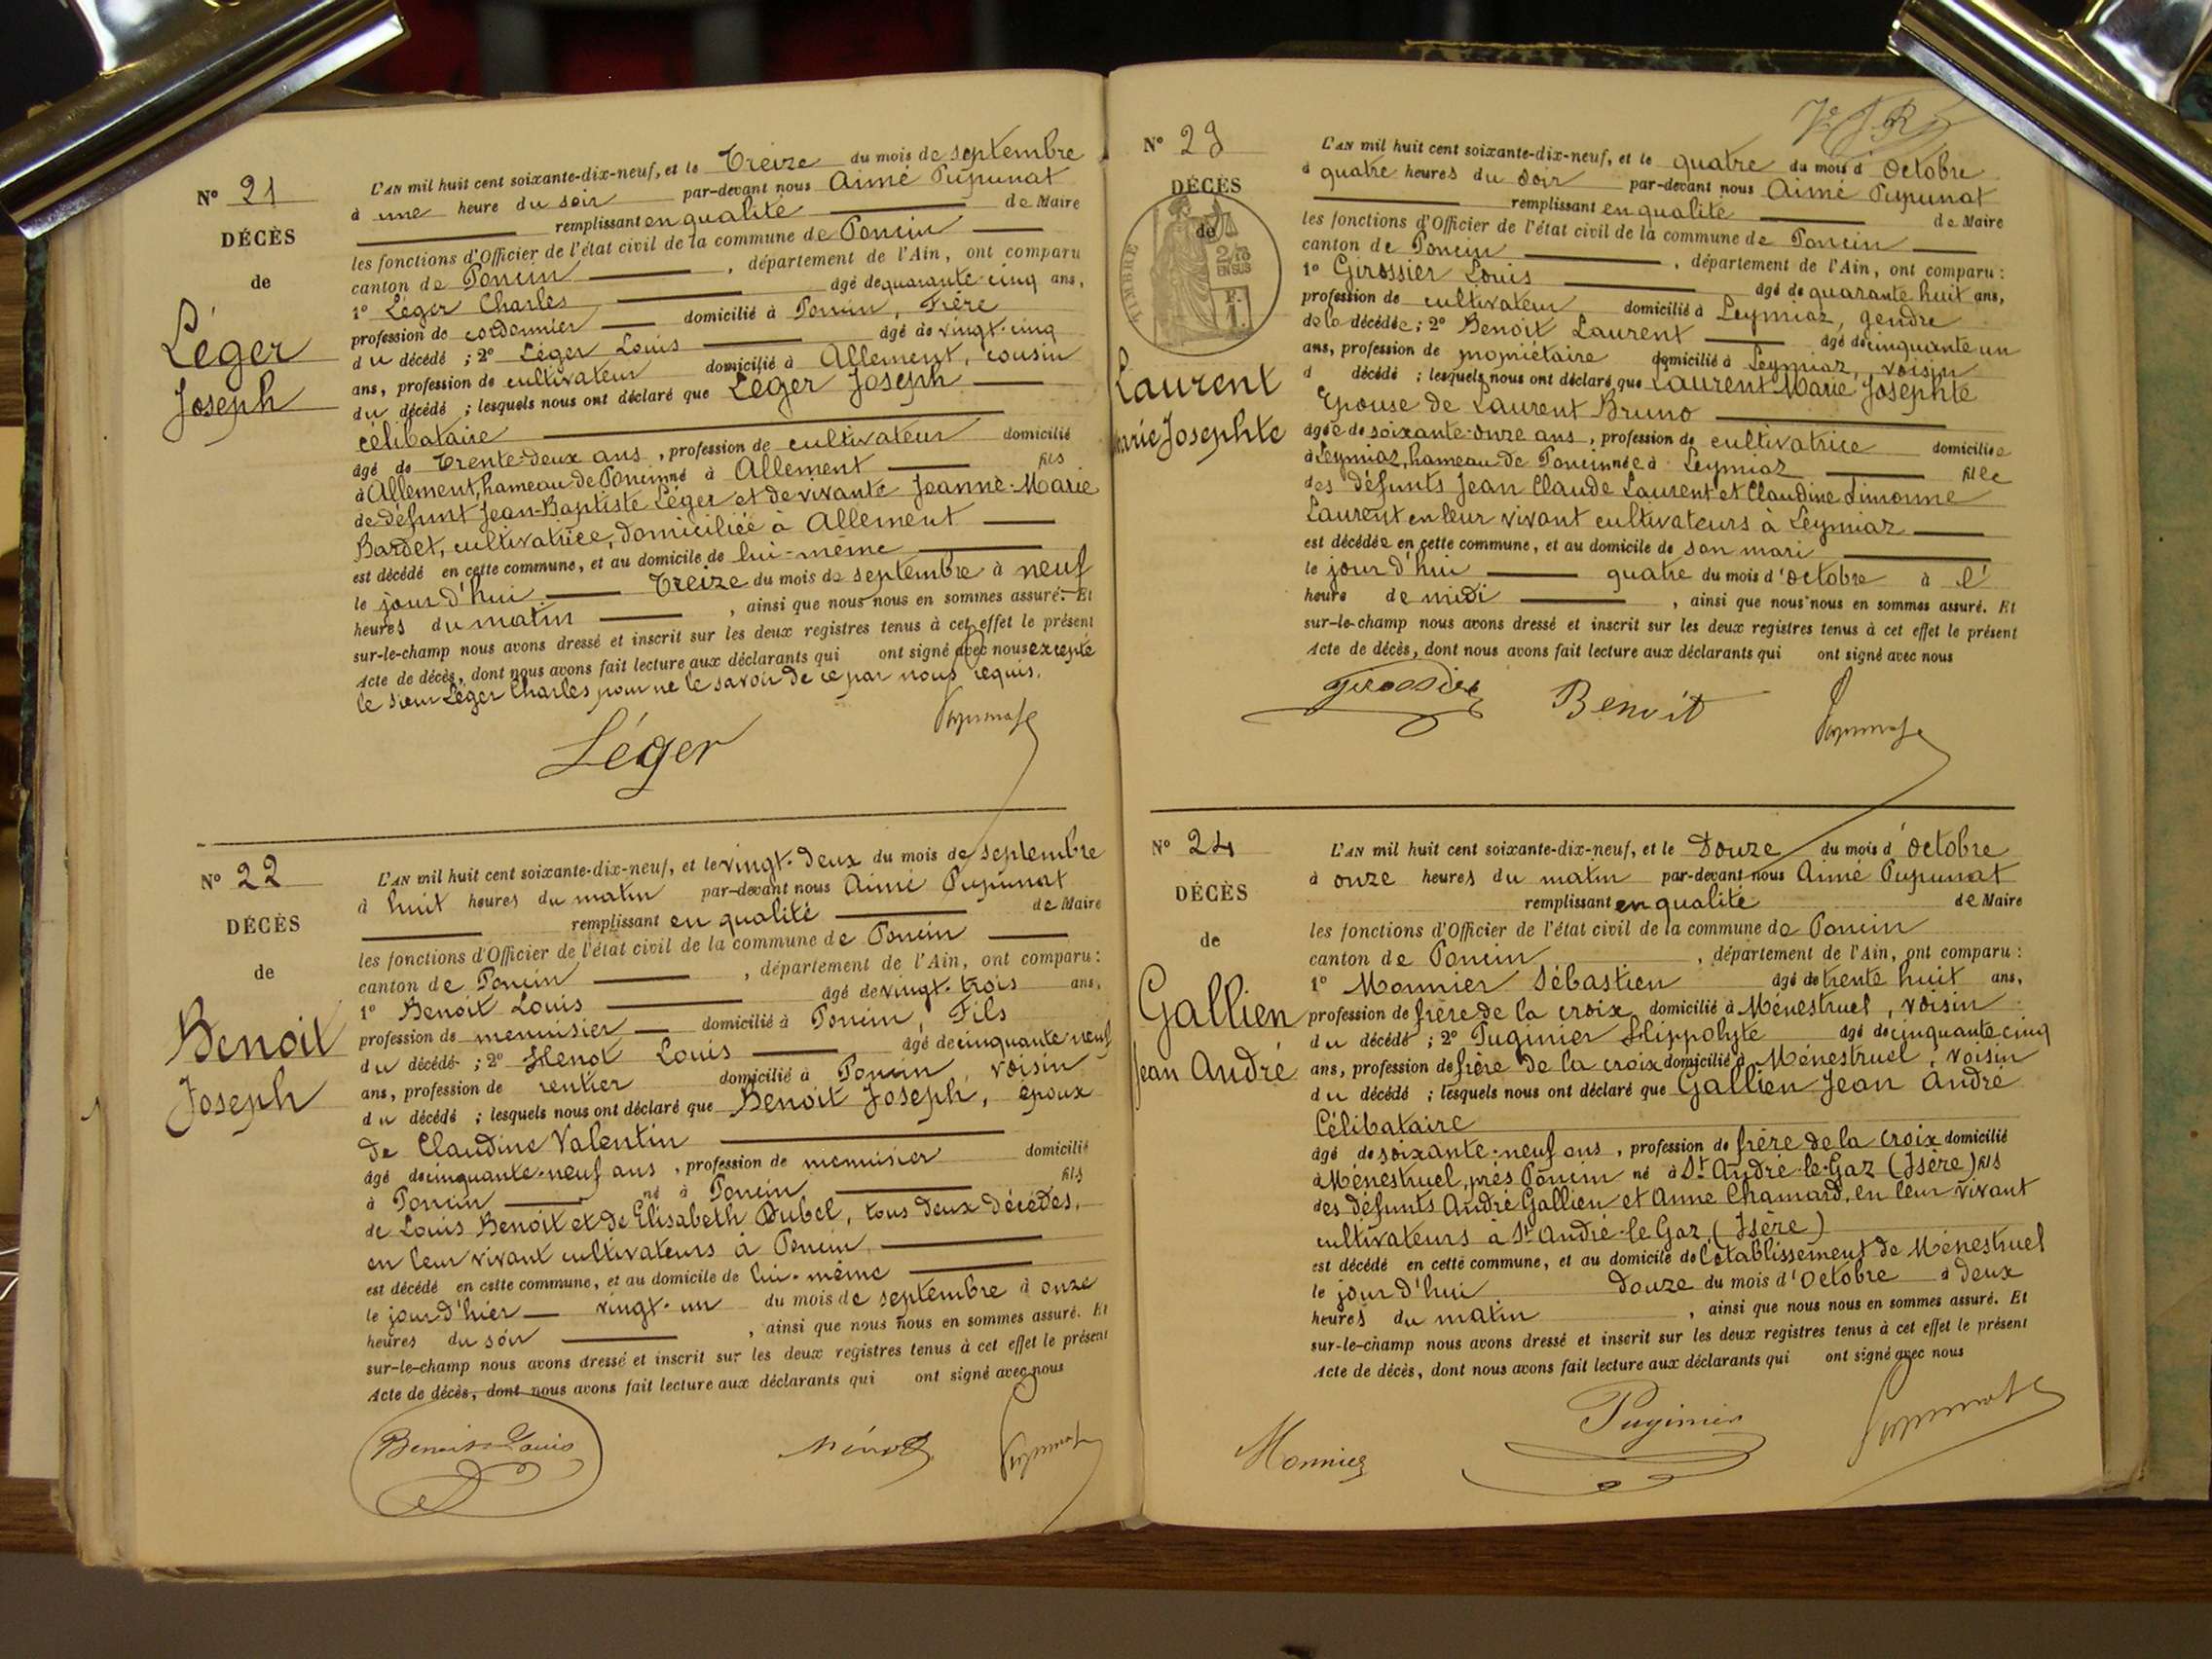 N° 21
DÉCÈS
de
Léger
Joseph
L'AN mil huit cent soixante-dix-neuf, et le Treize du mois de septembre
à une heure du soir par-devant nous Aimé Pupunat
remplissant en qualité de Maire
les fonctions d'Officier de l'état civil de la commune de Poncin
canton de Poncin, département de l'Ain, ont comparu
1° Léger Charles âgé de quarante-cinq ans,
profession de cordonnier domicilié à Poncin, Frère
du décédé ; 2° Léger Louis âgé de vingt-cinq
ans, profession de cultivateur domicilié à Allement, cousin
du décédé ; lesquels nous ont déclaré que Léger Joseph
célibataire
âgé de Trente-deux ans, profession de cultivateur domicilié
à Allement, hameau de Poncin né à Allement fils
de défunt Jean-Baptiste Léger et de vivante Jeanne-Marie
Bardet, cultivatrice, domiciliée à Allement
est décédé en cette commune, et au domicile de lui-même
le jour d'hui Treize du mois de septembre à neuf
heures du matin, ainsi que nous nous en sommes assuré. Et
sur-le-champ nous avons dressé et inscrit sur les deux registres tenus à cet effet le présent
Acte de décès, dont nous avons fait lecture aux déclarants qui ont signé avec nous excepté
le sieur Léger Charles pour ne le savoir de ce par nous requis.
Léger Pupunat
N° 22
DÉCÈS
de
Benoit
Joseph
L'AN mil huit cent soixante-dix-neuf, et le vingt-deux du mois de septembre
à huit heures du matin par-devant nous Aimé Pupunat
remplissant en qualité de Maire
les fonctions d'Officier de l'état civil de la commune de Poncin
canton de Poncin, département de l'Ain, ont comparu :
1° Benoit Louis âgé de vingt-trois ans,
profession de menuisier domicilié à Poncin, Fils
du décédé ; 2° Henot Louis âgé de cinquante-neuf
ans, profession de rentier domicilié à Poncin, voisin
du décédé ; lesquels nous ont déclaré que Benoit Joseph, époux
de Claudine Valentin
âgé de cinquante-neuf ans, profession de menuisier domicilié
à Poncin né à Poncin fils
de Louis Benoit et de Elisabeth Dubel, tous deux décédés,
en leur vivant cultivateurs à Poncin,
est décédé en cette commune, et au domicile de lui-même
le jour d'hier vingt-un du mois de septembre à onze
heures du soir, ainsi que nous nous en sommes assuré. Et
sur-le-champ nous avons dressé et inscrit sur les deux registres tenus à cet effet le présent
Acte de décès, dont nous avons fait lecture aux déclarants qui ont signé avec nous
Benoit Louis Pupunat
N° 23
DÉCÈS
de
TIMBRE
2/10
EN SUS
F.
1.
Laurent
Marie Josephte
L'AN mil huit cent soixante-dix-neuf, et le quatre du mois d'Octobre
à quatre heures du soir par-devant nous Aimé Pupunat
remplissant en qualité de Maire
les fonctions d'Officier de l'état civil de la commune de Poncin
canton de Poncin, département de l'Ain, ont comparu :
1° Girossier Louis âgé de quarante huit ans,
profession de cultivateur domicilié à Leymiaz, gendre
de la décédée ; 2° Benoit Laurent âgé de cinquante un
ans, profession de propriétaire domicilié à Leymiaz, voisin
d décédé ; lesquels nous ont déclaré que Laurent Marie Josephte
Epouse de Laurent Bruno
âgée de soixante-onze ans, profession de cultivatrice domiciliée
à Leymiaz, hameau de Poncin née à Leymiaz fille
des défunts Jean Claude Laurent et Claudine Limonne
Laurent en leur vivant cultivateurs à Leymiaz
est décédée en cette commune, et au domicile de son mari
le jour d'hui quatre du mois d'octobre à l'
heure de midi, ainsi que nous nous en sommes assuré. Et
sur-le-champ nous avons dressé et inscrit sur les deux registres tenus à cet effet le présent
Acte de décès, dont nous avons fait lecture aux déclarants qui ont signé avec nous
Girossier Benoit Pupunat
N° 24
DÉCÈS
de
Gallien
Jean André
L'AN mil huit cent soixante-dix-neuf, et le Douze du mois d'Octobre
à onze heures du matin par-devant nous Aimé Pupunat
remplissant en qualité de Maire
les fonctions d'Officier de l'état civil de la commune de Poncin
canton de Poncin, département de l'Ain, ont comparu :
1° Monnier Sébastien âgé de trente huit ans,
profession de frère de la croix domicilié à Ménestruel, voisin
du décédé ; 2° Puginier Hippolyte âgé de cinquante cinq
ans, profession de frère de la croix domicilié à Ménestruel, voisin
du décédé ; lesquels nous ont déclaré que Gallien Jean André
Célibataire
âgé de soixante-neuf ans, profession de frère de la croix domicilié
à Ménestruel, près Poncin né à St André-le-Gaz (Isère) fils
des défunts André Gallien et Anne Chamard, en leur vivant
cultivateurs à St André-le-Gaz, (Isère)
est décédé en cette commune, et au domicile de l'établissement de Ménestruel
le jour d'hui Douze du mois d'Octobre à deux
heures du matin, ainsi que nous nous en sommes assuré. Et
sur-le-champ nous avons dressé et inscrit sur les deux registres tenus à cet effet le présent
Acte de décès, dont nous avons fait lecture aux déclarants qui ont signé avec nous
Monnier Puginier Pupunat